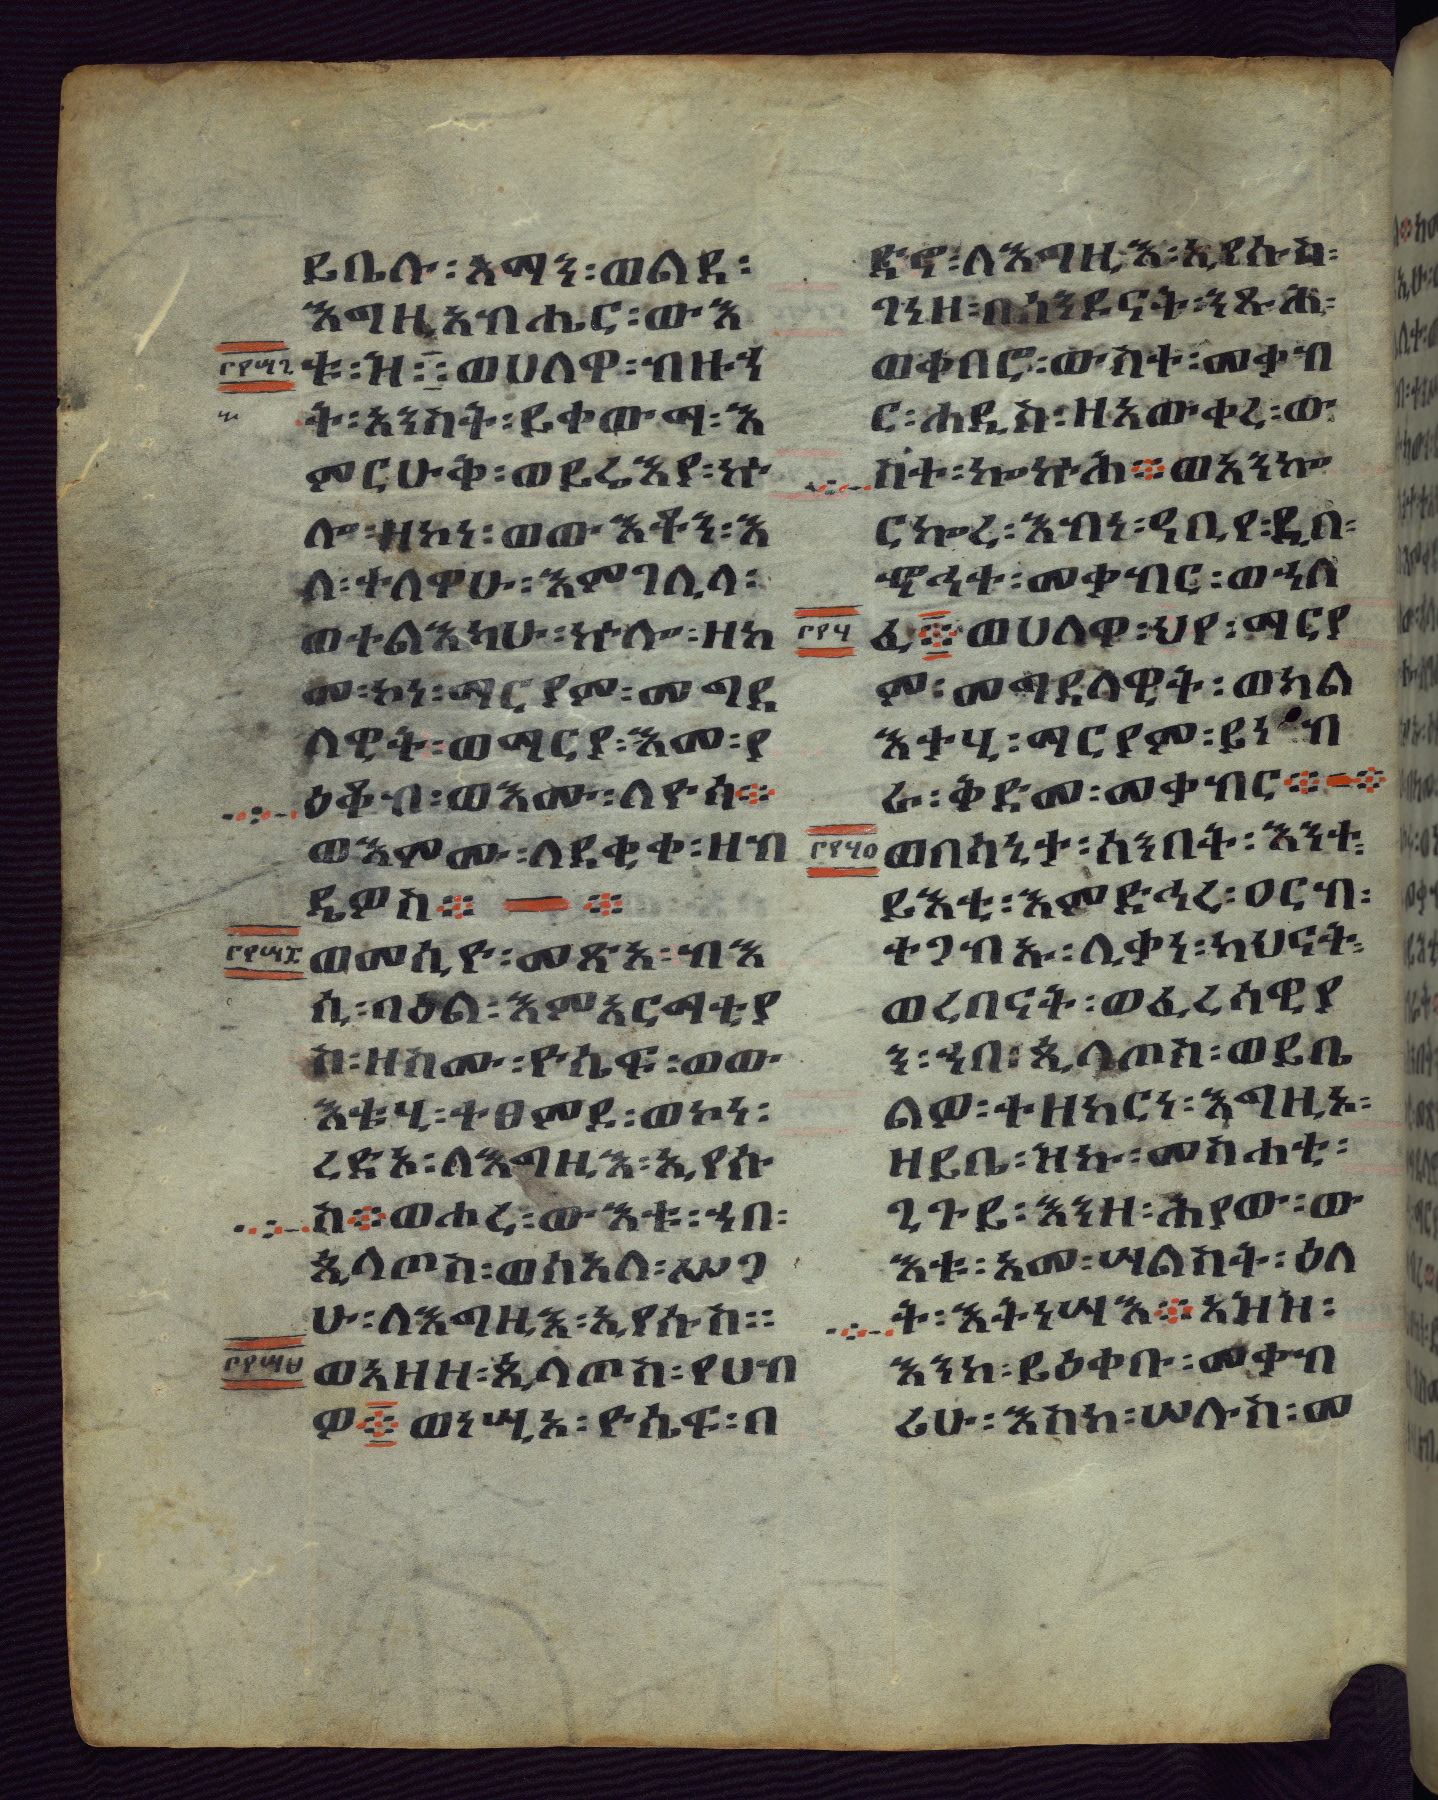 ይቤሉ፡አማን፡ወልደ፡
እግዚአብሔር፡ውእ
ቱ፡ዝ፡፡ወሀለዋ፡ብዙኃ
ት፡አንስት፡ይቀውማ፡እ
ምርሁቅ፡ወይሬእያ፡ኵ
ሎ፡ዘኮነ፡ወውእቶን፡እ
ለ፡ተለዋሁ፡እምገሊላ፡
ወተልእካሁ፡ኵሎ፡ዘከ
መ፡ኮነ፡ማርያም፡መግደ
ላዊት፡ወማርያ፡እመ፡ያ
ዕቆብ፡ወእሙ፡ለዮሳ፨
ወእምሙ፡ለደቂቀ፡ዘብ
ዴዎስ፨ ፨
ወመሲዮ፡መጽአ፡ብእ
ሲ፡ባዕል፡እምአርማቲያ
ስ፡ዘስሙ፡ዮሴፍ፡ወው
እቱሂ፡ተፀምደ፡ወኮነ፡
ረድአ፡ለእግዚእ፡ኢየሱ
ስ፨ወሖረ፡ውእቱ፡ኀበ፡
ጲላጦስ፡ወሰአለ፡ሥጋ
ሁ፡ለእግዚእ፡ኢየሱስ፡፡
ወአዘዘ፡ጲላጦስ፡የሀብ
ዎ፨ወነሢኦ፡ዮሴፍ፡በ
ድኖ፡ለእግዚእ፡ኢየሱስ፡
ገነዘ፡በሰንዶናት፡ንጹሕ፡
ወቀበሮ፡ውስተ፡መቃብ
ር፡ሐዲስ፡ዘአውቀረ፡ው
ስተ፡ኰኵሕ፨ወአንኰ
ርኰረ፡እብነ፡ዲበ፡የዴበ፡
ኆኅተ፡መቃብር፡ወኀለ
ፈ፨ወሀለዋ፡ህየ፡ማርያ
ም፡መግደላዊት፡ወካል
እታሂ፡ማርያም፡ይነብ
ራ፡ቅድመ፡መቃብር፨ ፨
ወበሳኒታ፡ሰንበት፡እንተ፡
ይእቲ፡እምድኅረ፡ዐርብ፡
ተጋብኡ፡ሊቃነ፡ካህናት፡
ወረበናት፡ወፈሪሳዊያ
ን፡ኀበ፡ጲላጦስ፡ወይቤ
ልዎ፡ተዘከርነ፡እግዚኦ፡
ዘይቤ፡ዝኩ፡መስሐቲ፡
ጊጉይ፡እንዘ፡ሕያው፡ው
እቱ፡አመ፡ሣልስት፡ዕለ
ት፡እትነሣእ፨አዝዝ፡
እንከ፡ይዕቀቡ፡መቃብ
ሪሁ፡እስከ፡ሠሉስ፡መ